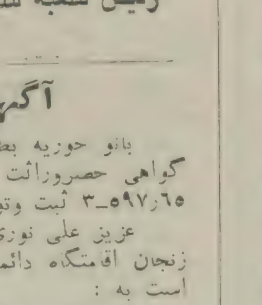 رئیس شعبه
آگهی
بانو حوریه
گواهی حصروراثت
۳_۵۹۷ر۶۵ ثبت
عزیز علی نوری
زنجان اقامتگاه دائم
است به :